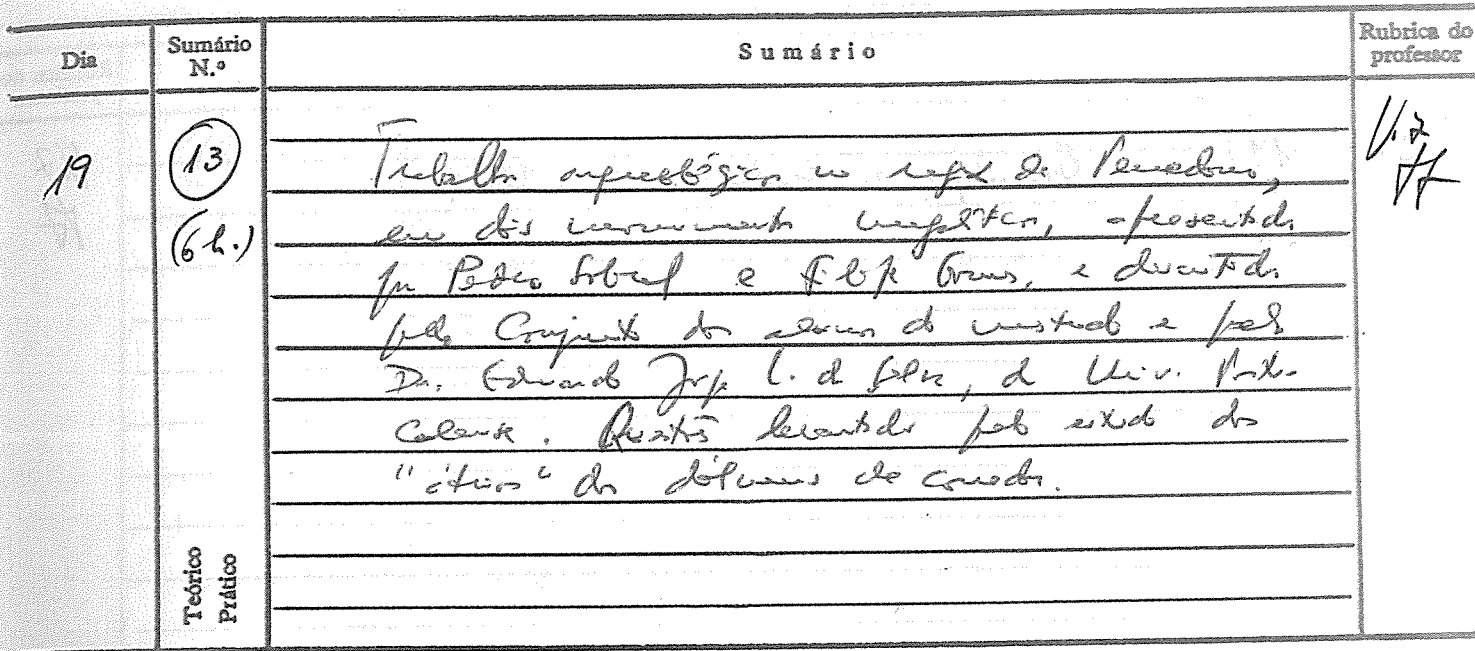 Dia
Sumário N.º
Sumário
Rubrica do professor
19
13
(6 h.)
Trabalhos arqueológicos na região de Penedono,
em dois monumentos megalíticos, apresentados
por Pedro Sobral e Filipe, e discutidos
pelo Conjunto dos alunos do mestrado e pelo
Dr. Eduardo Jorge L. da Silva, da Univ. Portu-
calense. Questões levantadas pelo estudo dos
"átrios" dos dólmens de corredor.
Teórico
Prático